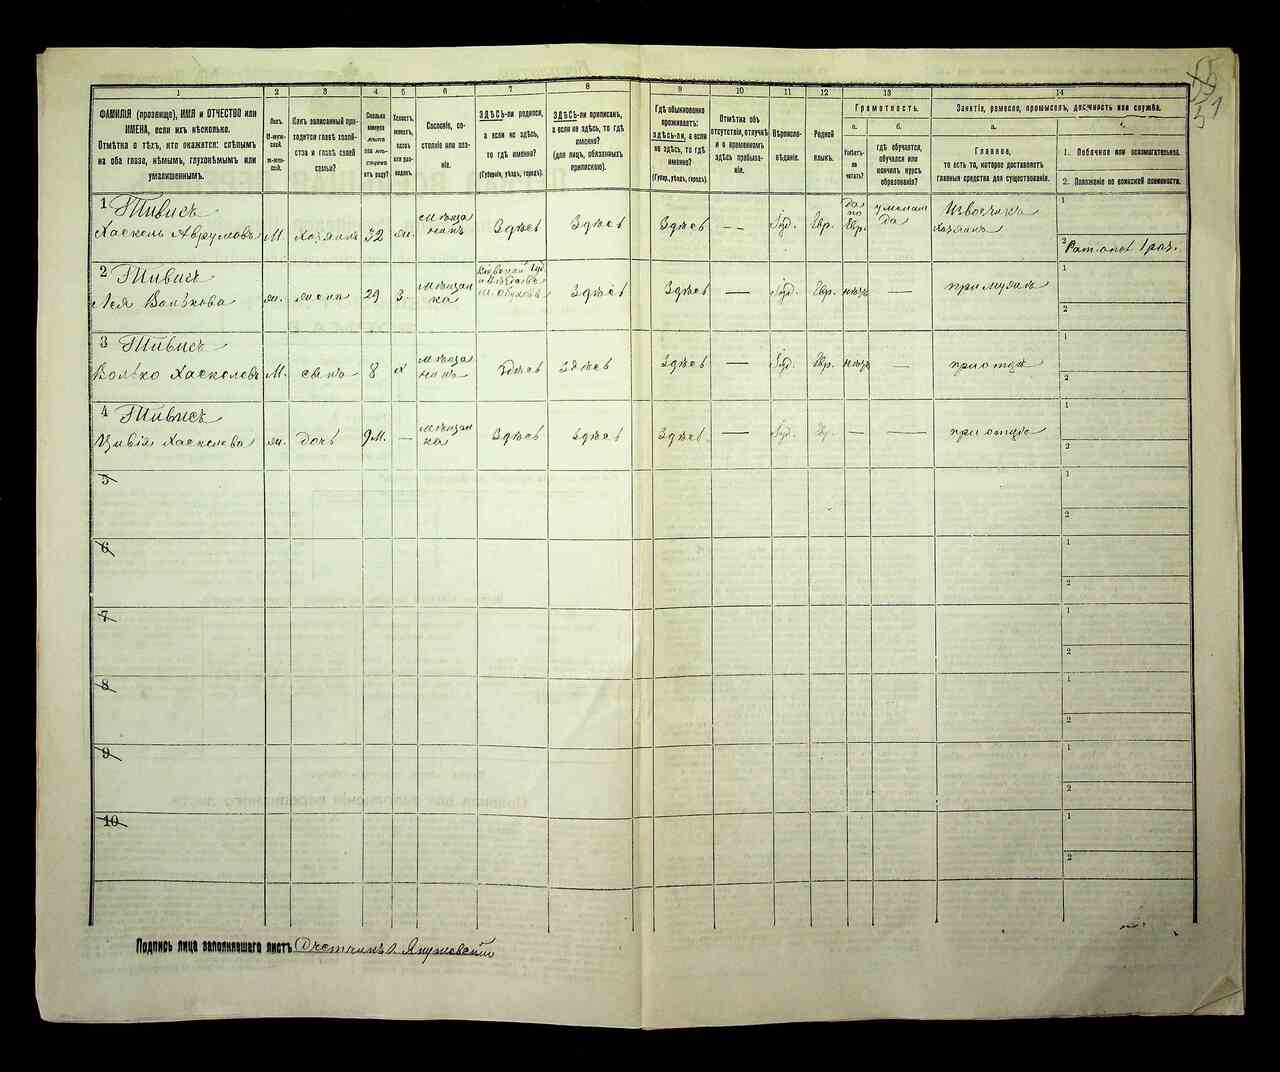 1
2
3
4
5
6
7
8
9
10
11
12
13
14
ФАМИЛІЯ (прозвище), ИМЯ и ОТЧЕСТВО или
ИМЕНА, если ихъ нѣсколько.
Отмѣтка о тѣхъ, кто окажется: слѣпымъ
на оба глаза, нѣмымъ, глухонѣмымъ или
умалишеннымъ.
Полъ.
М-муж-
ской.
Ж-жен-
скій.
Какъ записанный при-
ходится главѣ хозяй-
ства и главѣ своей
семьи?
Сколько
минуло
лѣтъ
или мѣ-
сяцевъ
отъ роду?
Холостъ,
женатъ,
вдовъ
или раз-
веденъ.
Сословіе, со-
стояніе или зва-
ніе.
ЗДѢСЬ-ли родился,
а если не здѣсь,
то гдѣ именно?
(Губернія, уѣздъ, городъ).
ЗДѢСЬ-ли приписанъ,
а если не здѣсь, то гдѣ
именно?
(для лицъ, обязанныхъ
припискою).
Гдѣ обыкновенно
проживаетъ:
здѣсь-ли, а если
не здѣсь, то гдѣ
именно?
(Губер., уѣздъ, городъ).
Отмѣтка объ
отсутствіи, отлучкѣ
и о временномъ
здѣсь пребыва-
ніи.
Вѣроиспо-
вѣданіе.
Родной
языкъ.
Грамотность.
а.
Умѣетъ-
ли
читать?
б.
гдѣ обучается,
обучался или
кончилъ курсъ
образованія?
Занятіе, ремесло, промыселъ, должность или служба.
а.
Главное,
то есть то, которое доставляетъ
главныя средства для существованія.
1. Побочное или вспомогательное.
2. Положеніе по воинской повинности.
1 Тивисъ
Хаскель Аврумовъ М. хозяинъ 32 ж. мѣща
нинъ Здѣсь Здѣсь Здѣсь — Іуд. Евр. да
по
Евр. у мелам
да Извозчикъ
хозяинъ
1
2 Рат. опол. 1 раз.
2 Тивисъ
Лея Волькова ж. жена 29 З. мѣщан
ка Здѣсь Здѣсь — Іуд. Евр. нѣтъ — при мужѣ
1
2
3 Тивисъ
Волько Хаскелевъ М. сынъ 8 х мѣща
нинъ Здѣсь Здѣсь Здѣсь — Іуд. Евр. нѣтъ — при отцѣ
1
2
4 Тивисъ
Цивія Хаскелева ж. дочь 9 М. — мѣщан
ка Здѣсь Здѣсь Здѣсь — Іуд. Ев. — — при отцѣ
1
2
5
1
2
6
1
2
7
1
2
8
1
2
9
1
2
10
1
2
Подпись лица заполнявшаго листъ Счетчикъ